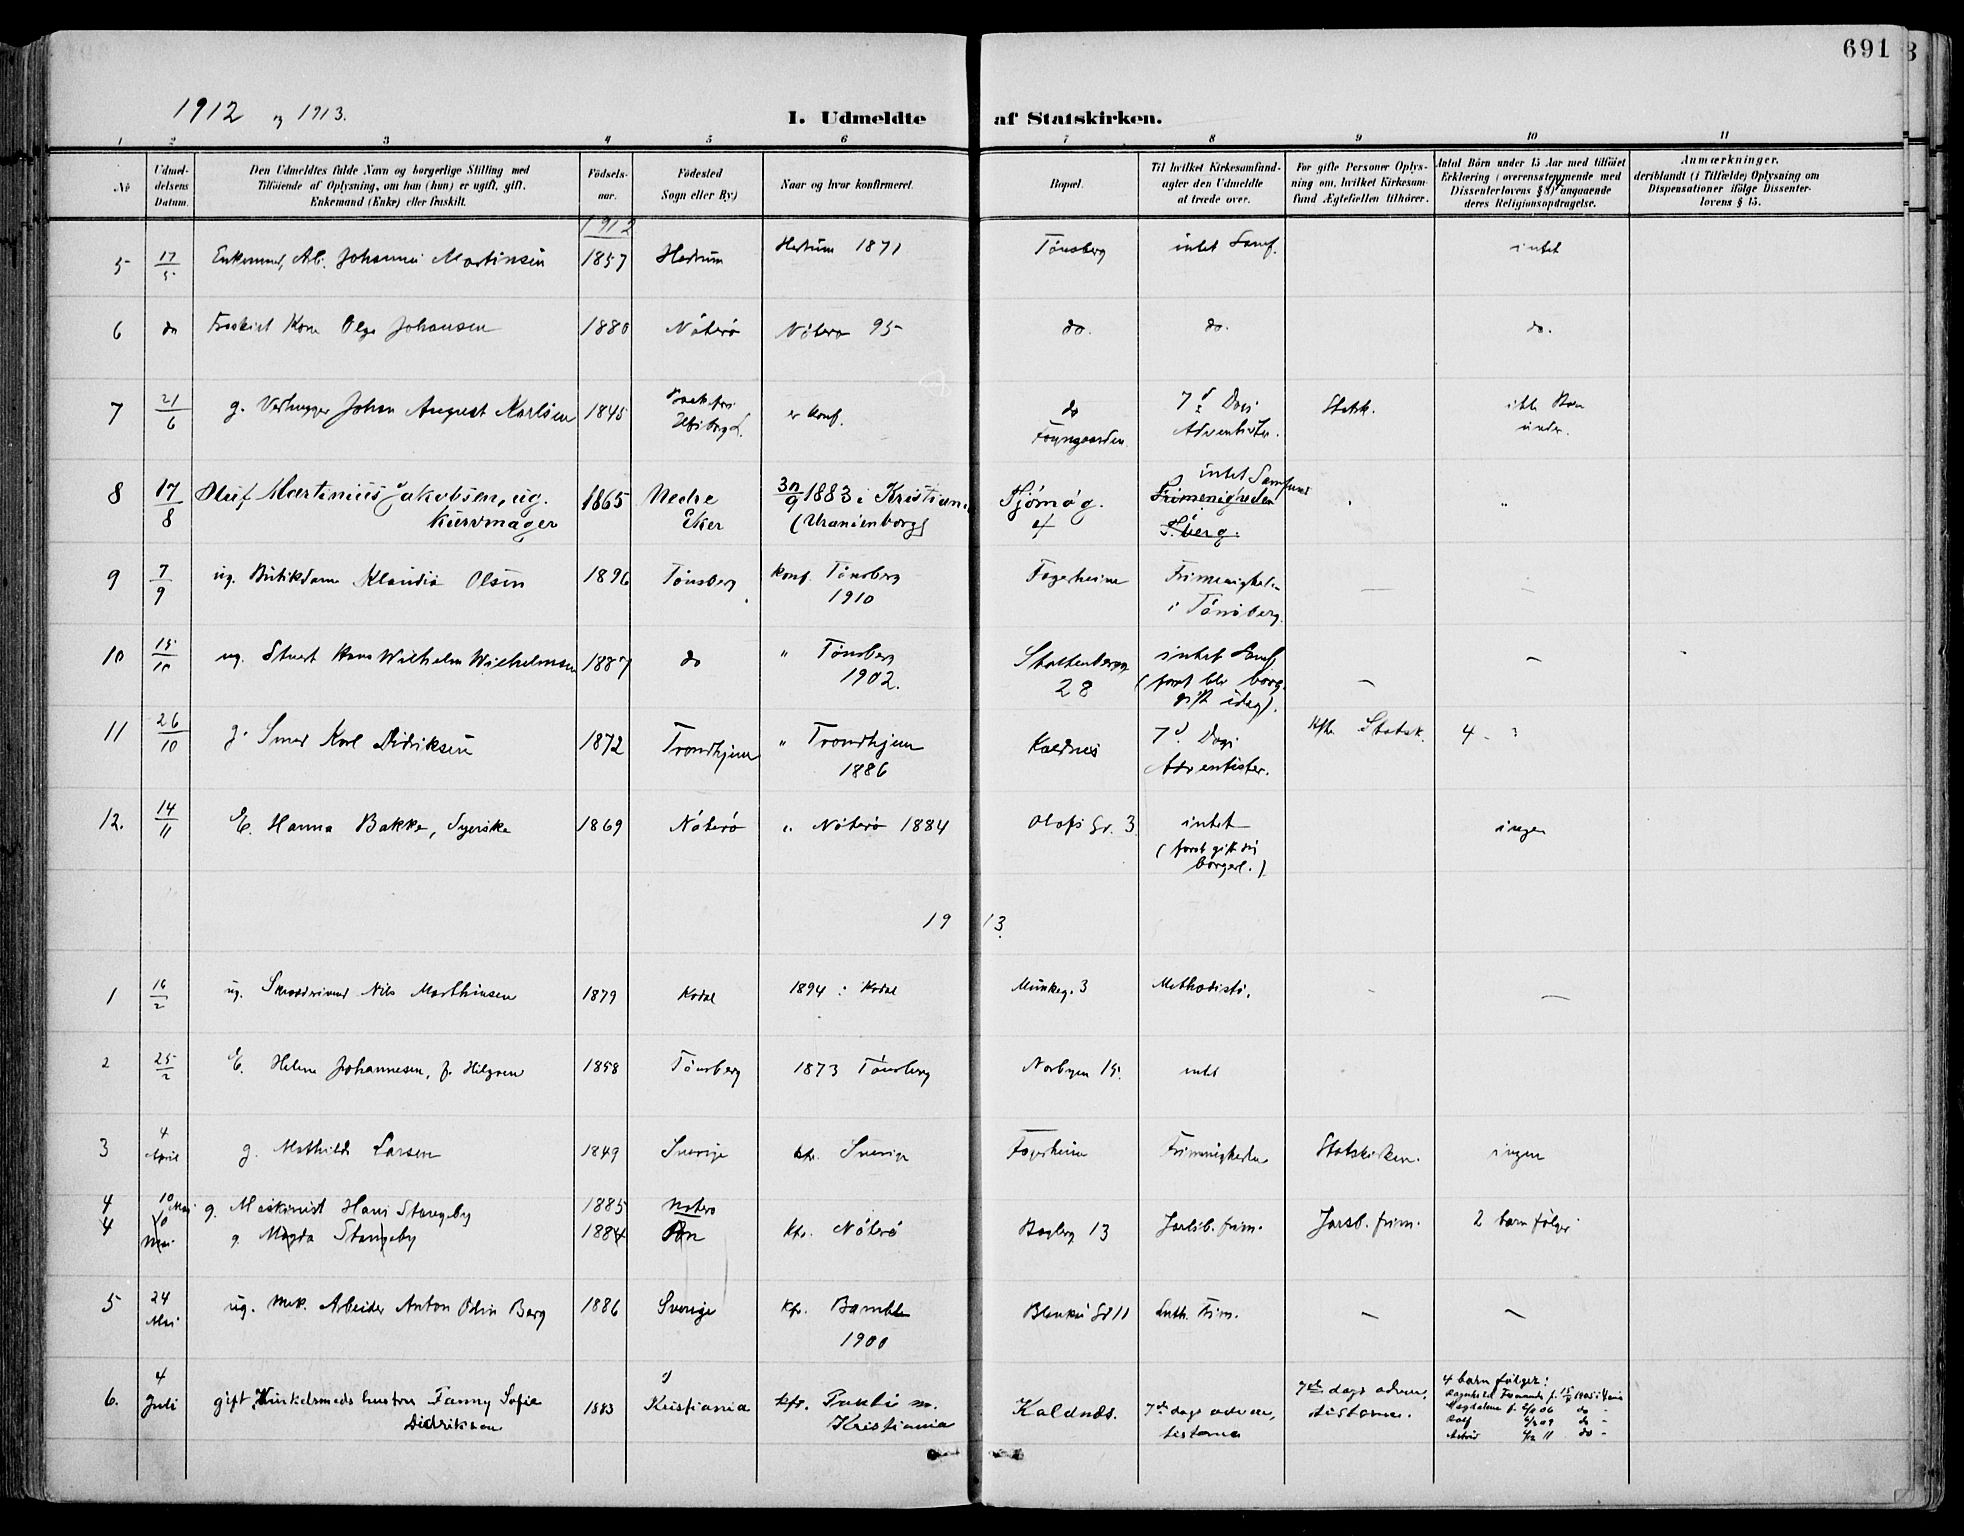 691
1912 og 1913.
I. Udmeldte af Statskirken.
1 2 3 4 5 6 7 8 9 10 11
No
Udmeldelsens Datum.
Den Udmeldtes fulde Navn og borgerlige Stilling med Tilföiende af Oplysning, om han (hun) er ugift, gift, Enkemand (Enke) eller fraskilt.
Födselsaar.
Födested Sogn eller By)
Naar og hvor konfirmeret.
Bopæl.
Til hvilket Kirkesamfund agter den Udmeldte at træde over.
For gifte Personer Oplysning om, hvilket Kirkesamfund Ægtefællen tilhörer.
Antal Börn under 15 Aar med tilföiet Erklæring i overensstemmende med Dissenterlovens § angaaende deres Religionsopdragelse.
Anmærkninger. deriblandt (i Tilfælde) Oplysning om Dispensationer ifölge Dissenterlovens § 15.
1912
5 17/5 Enkemand, Arb. Johannes Martinsen 1857 Hedrum Hedrum 1871 Tönsberg intet Samf. intet
6 do Fraskilt Kone Olga Johansen 1880 Nöterö Nöterö 95 do. do. do.
7 21/6 g. Johan August Karlsen 1845 er konf. do Foyngaarden 7d Dags Adventister. Statsk. ikke Barn under.
8 17/8 Oluf Martinius Jakobsen, ug. Kurvmager 1865 Nedre Eker 1883 i Kristiania (Uranienborg) Tjømøg. 4 intet Samfund Frimenigheden T.berg. "
9 7/9 ug. Butikdame Klaudia Olsen 1896 Tönsberg konf. Tönsberg 1910 Fagerheim Frimenigheden i Tönsberg. — –
10 15/10 ug. Stuert Hans Wilhelm Wilhelmsen 1887 do " Tönsberg 1902. Stoltenbergg. 28 intet Samf. (for at blive borg. gift idag). — –
11 26/10 g. Smed Karl Didriksen 1872 Trondhjem " Trondhjem 1886 Kaldnes 7d. Dags Adventister. Statsk. 4 -
12. 14/11 E. Hanna Bakke, Syerske 1869 Nöterö " Nöterö 1884 Olafs Gr. 3 intet (for at giftes borgerl.) ingen
1913.
1 16/2 ug. Nils Marthinsen 1879 Kodal 1894 i Kodal Munkeg. 3 Methodist. - —
2 25/2 E. Helene Johannesen, f. Hilgren 1858 Tönsberg 1873 Tönsberg Norbyen 15. intet
3 4 April g. Mathilde Larsen 1849 Sverige kfr. Sverige Fagerheim Frimenigheden Statskirken. ingen
4 10 Mai g. Maskinist Hans Stangeby 1885 Nøterø
4 10 Mai g Magda Stangeby 1884 kfr. Nöterö Bagleg 13 Jarlsb. frim. Jarsb. frim. 2 barn følger
5 24 Mai ug. mek. Arbeider Anton Odin Berg 1886 Sverige kfr. Bamble 1900 Gd 11 Luth. Frim. — —
6. 4 Juli gift Kinkelsmeds hustru Fanny Sofie Didriksen 1883 Kristiania kfr. Kristiania Kaldnæs. 7de dags adventisterne 7de dags adventisterne. 4 barn følger:
Magdalena f. 06 do
Rolf 09 do -
Astrid 11 do -